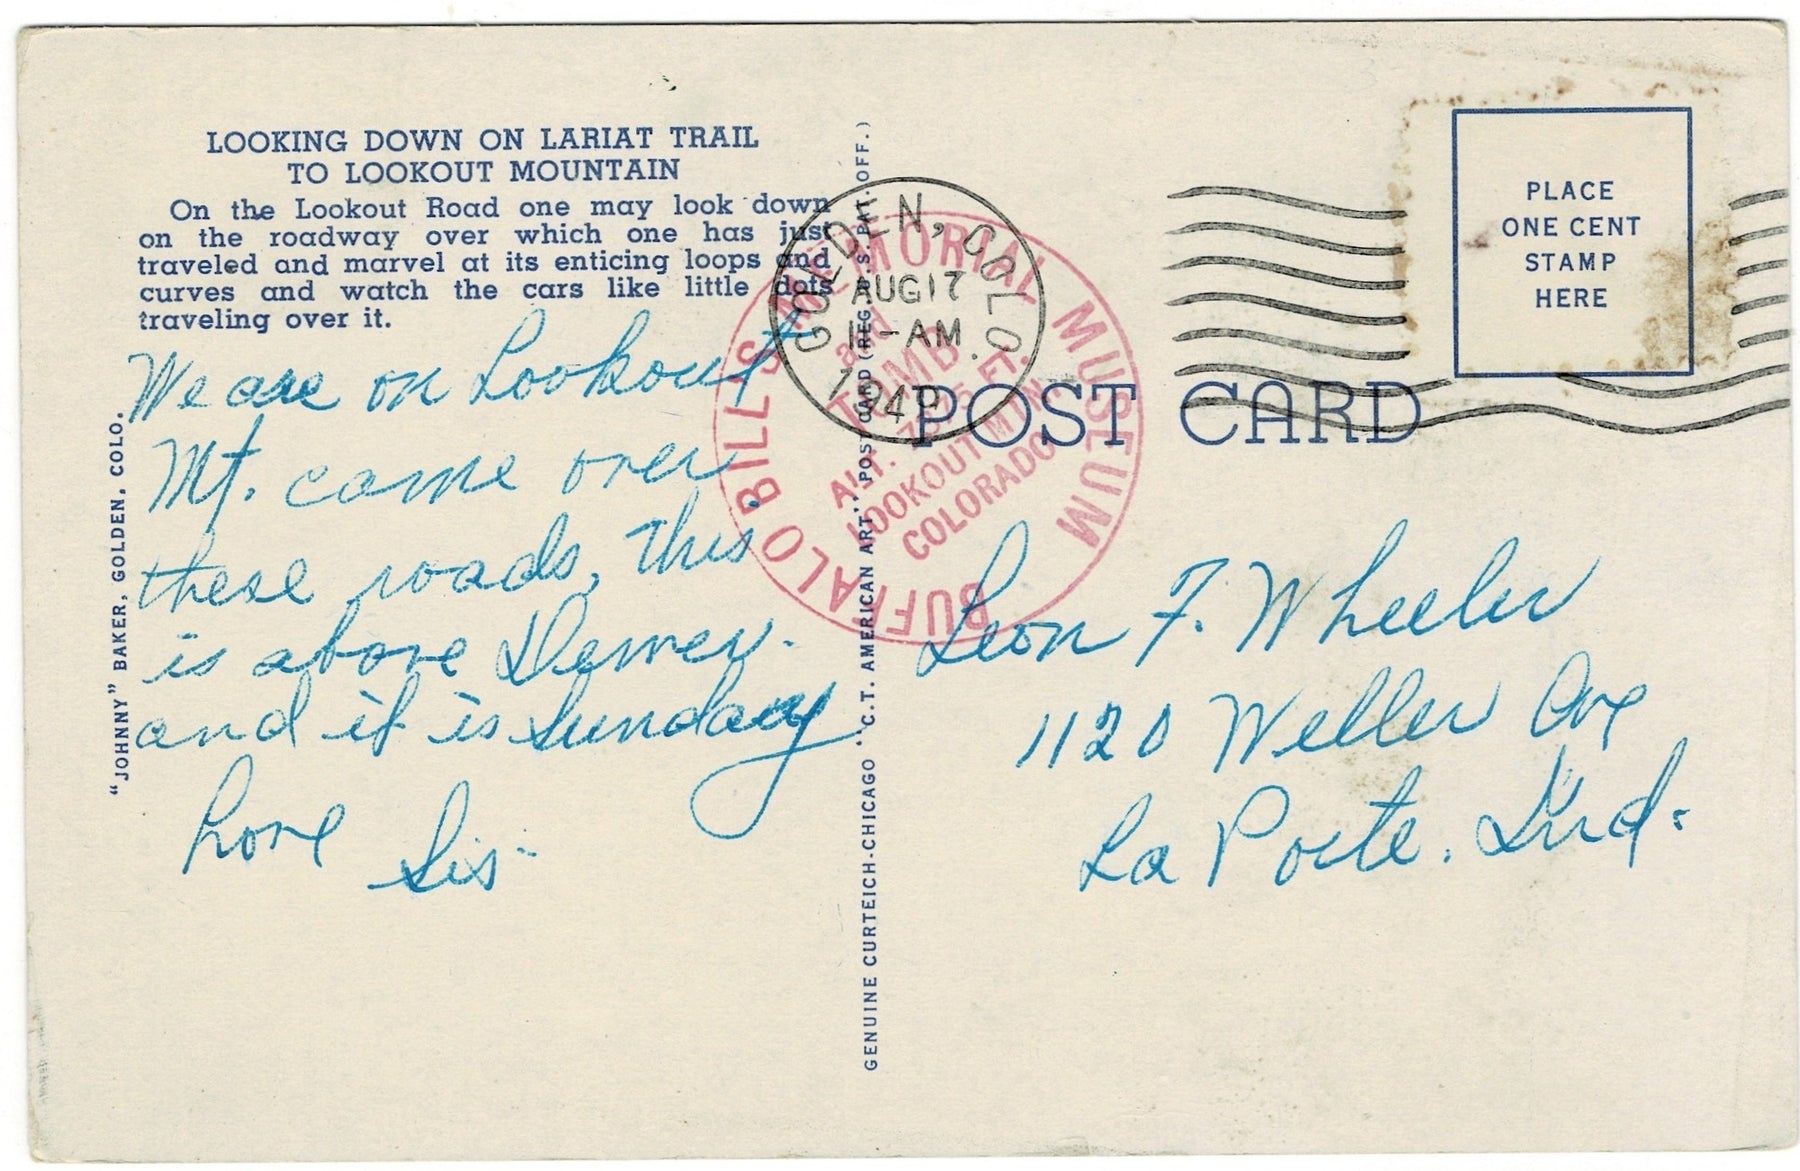 LOOKING DOWN ON LARIAT TRAIL
TO LOOKOUT MOUNTAIN
On the Lookout Road one may look down
on the roadway over which one has just
traveled and marvel at its enticing loops and
curves and watch the cars like little dots
traveling over it.
We are on Lookout
Mt. came over
these roads, this
is above Denver.
and it is Sunday
Love Sis
"JOHNNY" BAKER, GOLDEN, COLO.
GENUINE CURTEICH-CHICAGO "C.T. AMERICAN ART" POST CARD (REG. U.S. PAT. OFF.)
GOLDEN, COLO.
AUG 17
11-AM
1940
BUFFALO BILL'S MEMORIAL MUSEUM
and
TOMB
ALT. 7375 FT.
LOOKOUT MTN.
COLORADO
POST CARD
PLACE
ONE CENT
STAMP
HERE
Leon F. Wheeler
1120 Weller Ave
La Porte. Ind.